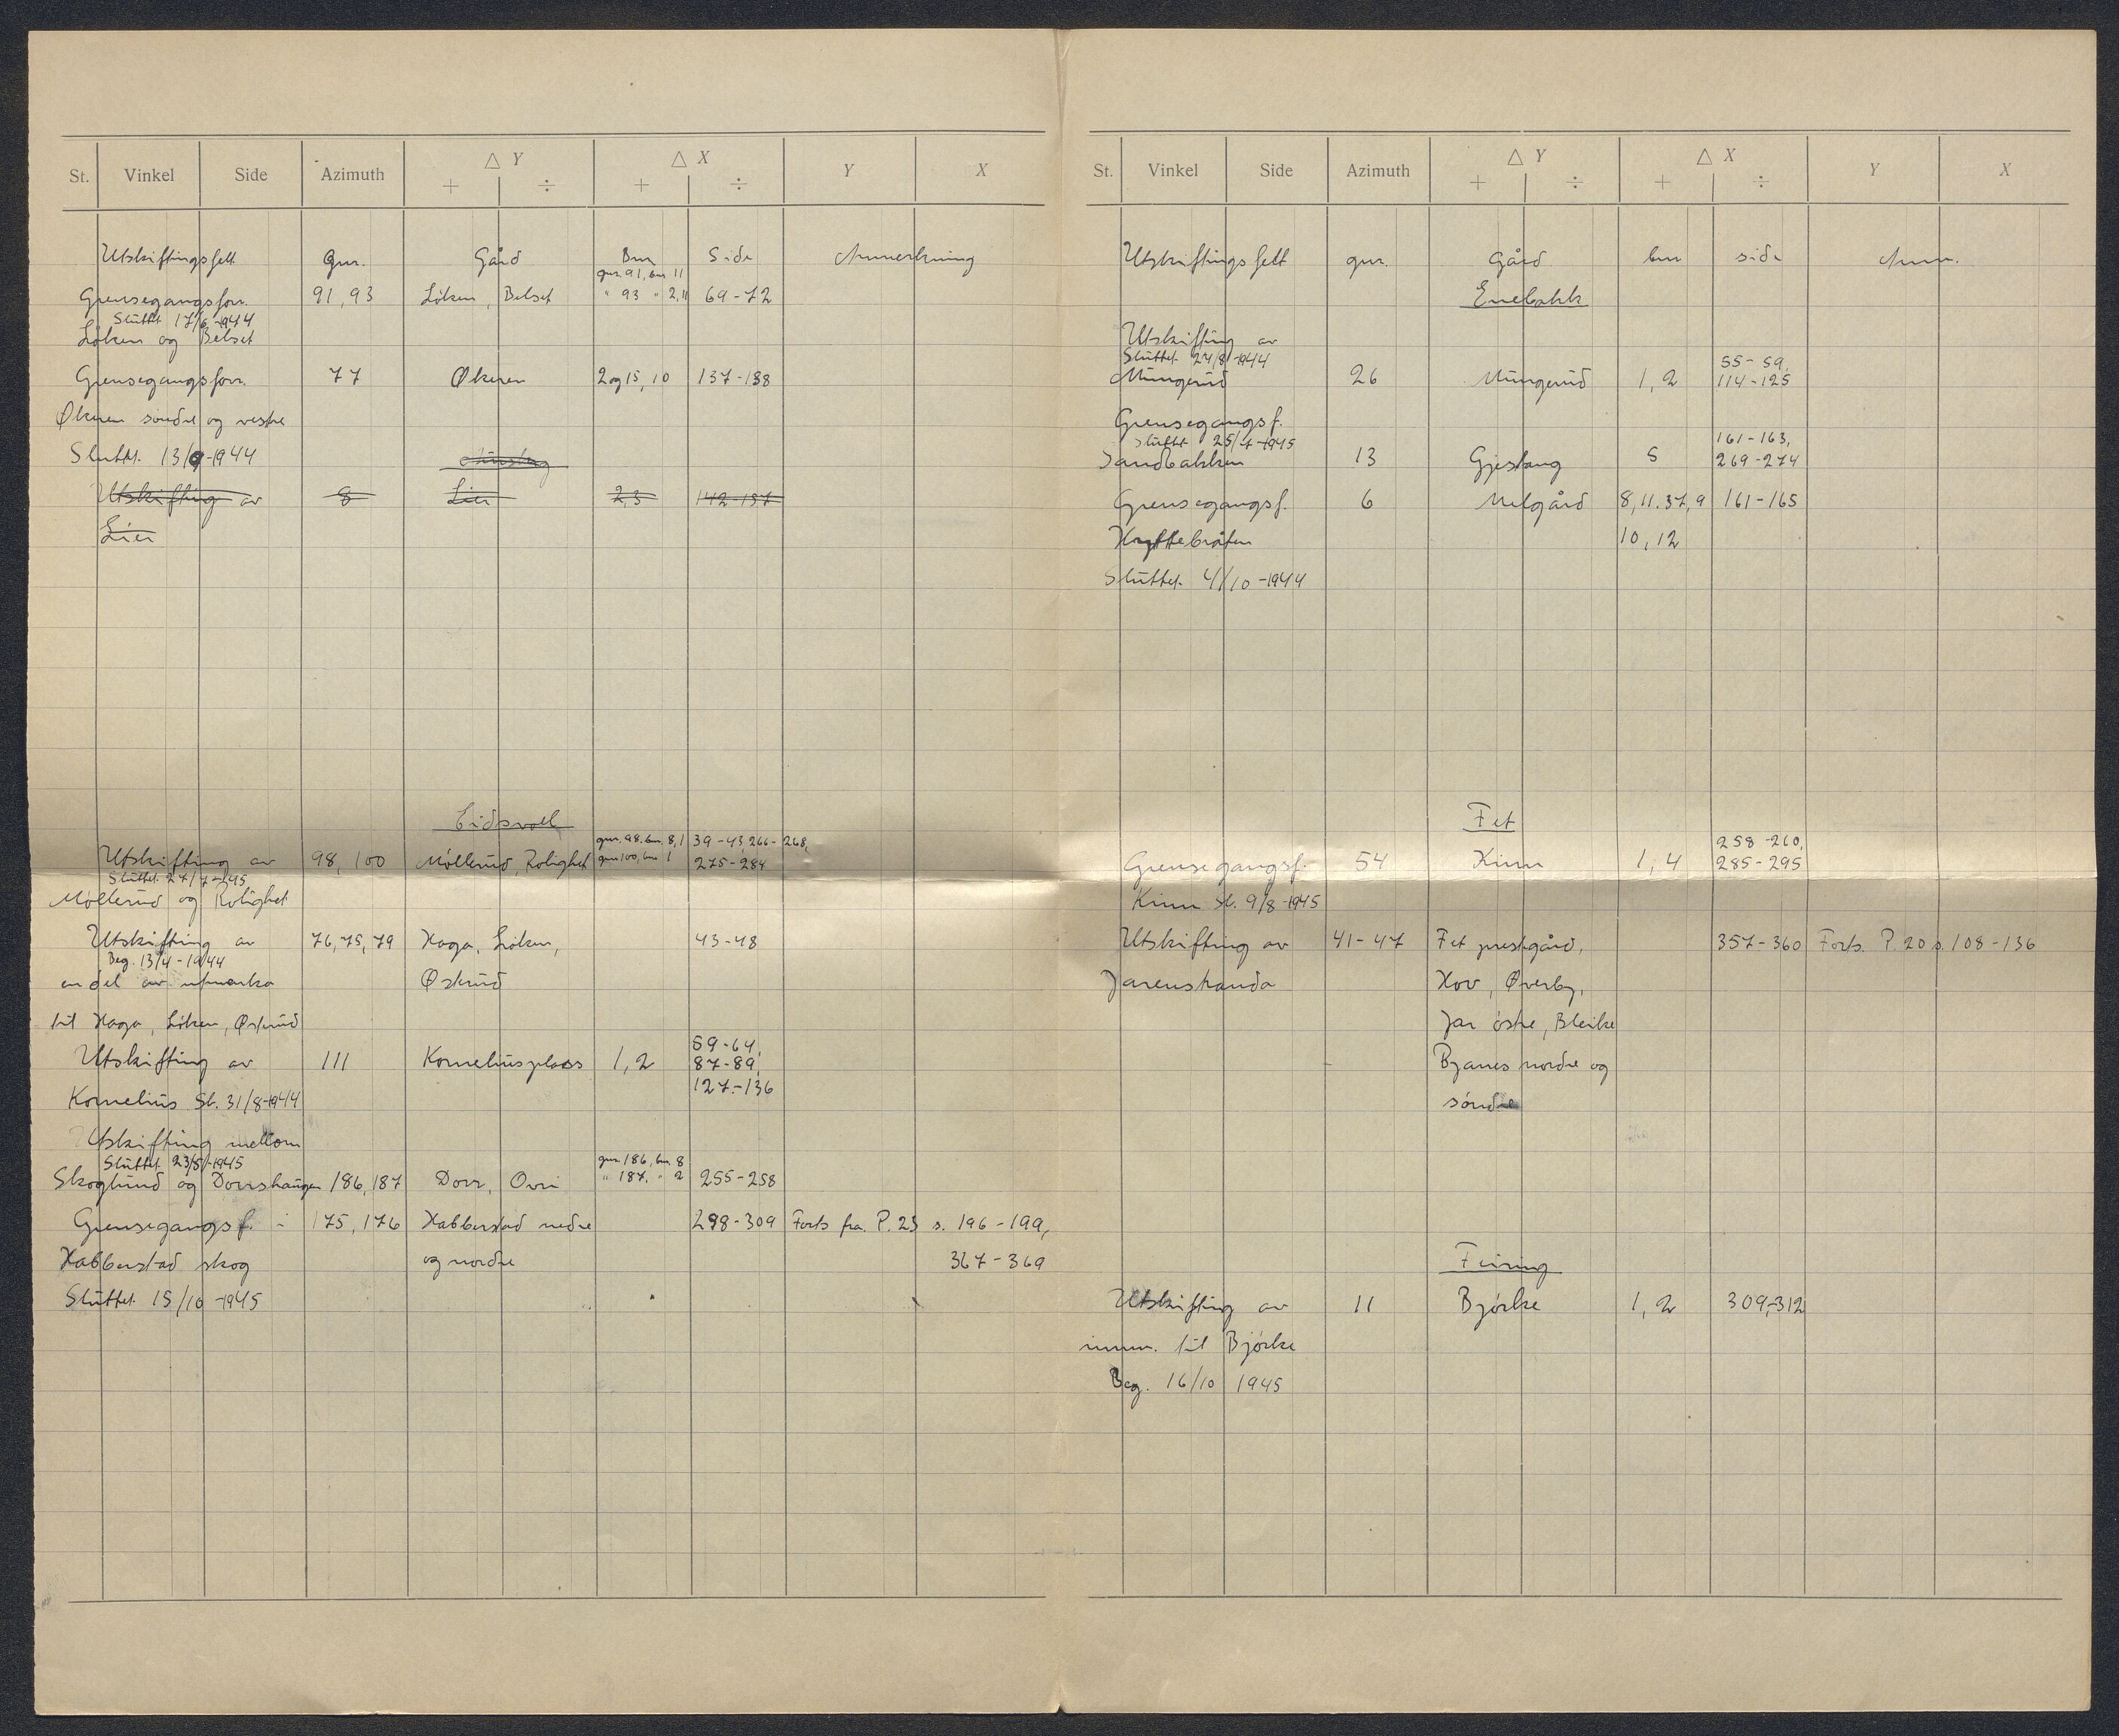 St. Vinkel Side Azimuth △ Y + ÷ △ X + ÷ Y X
Utskiftingsfelt Gnr. Gård Bnr Side Anmerkning
gnr. 91, bnr 11
Grensegangsforr. 91, 93 Löken, Belset " 93 " 2,11 69-72
Sluttet 17/6-1944
Löken og Belset
Grensegangsforr. 77 Økeren 2 og 15, 10 137-138
Økeren søndre og vestre
Sluttet. 13/9-1944
Utskifting av 8 Lier 2,3 142-157
Lier
Eidsvoll
gnr. 98. bnr. 8,1 39-43, 266-268,
Utskifting av 98, 100 Möllerud, Rolighet gnr 100, bnr 1 275-284
Sluttet. 27/7-45
Möllerud og Rolighet
Utskifting av 76, 75, 79 Haga, Löken, 43-48
Beg. 13/4-1944
en del av utmarka Øskrud
til Haga, Löken, Øskrud
59-64,
Utskifting av 111 Korneliusplass 1, 2 87-89,
127-136
Kornelius Sl. 31/8-1944
Utskifting mellom
Sluttet. 23/5-1945 gnr. 186, bnr 8
Skoglund og Dorrshaugen 186, 187 Dorr, Ovri " 187, " 2 255-258
Grensegangsf. i 175, 176 Habberstad nedre 298-309 Forts fra. P. 23 s. 196-199,
Habberstad skog og nordre 367-369
Sluttet. 15/10-1945
St. Vinkel Side Azimuth △ Y + ÷ △ X + ÷ Y X
Utskiftingsfelt gnr. Gård bnr side Anm.
Enebakk
Utskifting av
Sluttet. 24/8-1944 55-59,
Mungerud 26 Mungerud 1, 2 114-125
Grensegangsf.
Sluttet. 25/7-1945 161-163,
Sandbakken 13 Gjestang 5 269-274
Grensegangsf. 6 Melgård 8, 11. 37, 9 161-165
Hyttebråten 10, 12
Sluttet. 4/10-1944
Fet
258-260,
Grensegangsf. 54 Kinn 1, 4 285-295
Kinn Sl. 9/8-1945
Utskifting av 41-47 Fet prestgård, 357-360 Forts. P. 20 s. 108-136
Jarenstranda Hov, Øverby,
Jar östre, Bleike
Bjanes nordre og
söndre
Feiring
Utskifting av 11 Björke 1, 2 309-312
innm. til Björke
Beg. 16/10 1945